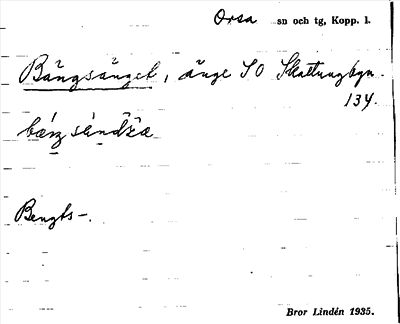 Orsa sn och tg, Kopp. l.
Bängsänget, änge SO Skattungbyn.
134.
Bengts-.
Bror Lindén 1935.